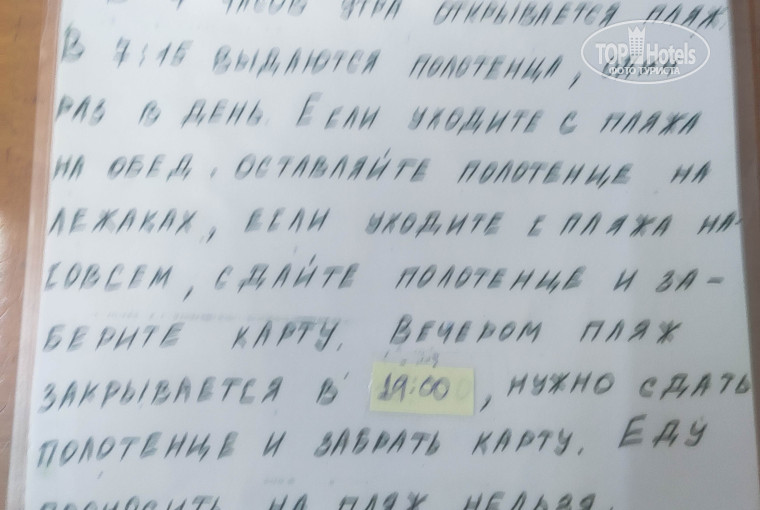 ЧАСОВ УТРА ОТКРЫВАЕТСЯ ПЛЯЖ.
В 7:15 ВЫДАЮТСЯ ПОЛОТЕНЦА,
РАЗ В ДЕНЬ. ЕСЛИ УХОДИТЕ С ПЛЯЖА
НА ОБЕД, ОСТАВЛЯЙТЕ ПОЛОТЕНЦЕ НА
ЛЕЖАКАХ, ЕСЛИ УХОДИТЕ С ПЛЯЖА НА-
СОВСЕМ, СДАЙТЕ ПОЛОТЕНЦЕ И ЗА-
БЕРИТЕ КАРТУ. ВЕЧЕРОМ ПЛЯЖ
ЗАКРЫВАЕТСЯ В 19:00, НУЖНО СДАТЬ
ПОЛОТЕНЦЕ И ЗАБРАТЬ КАРТУ. ЕДУ
ПРОНОСИТЬ НА ПЛЯЖ НЕЛЬЗЯ.
TOP Hotels
ФОТО ТУРИСТА